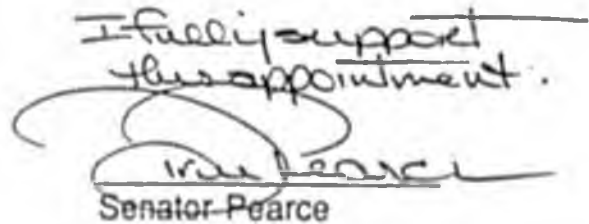 I fully support
this appointment.
Drue Pearce
Senator Pearce